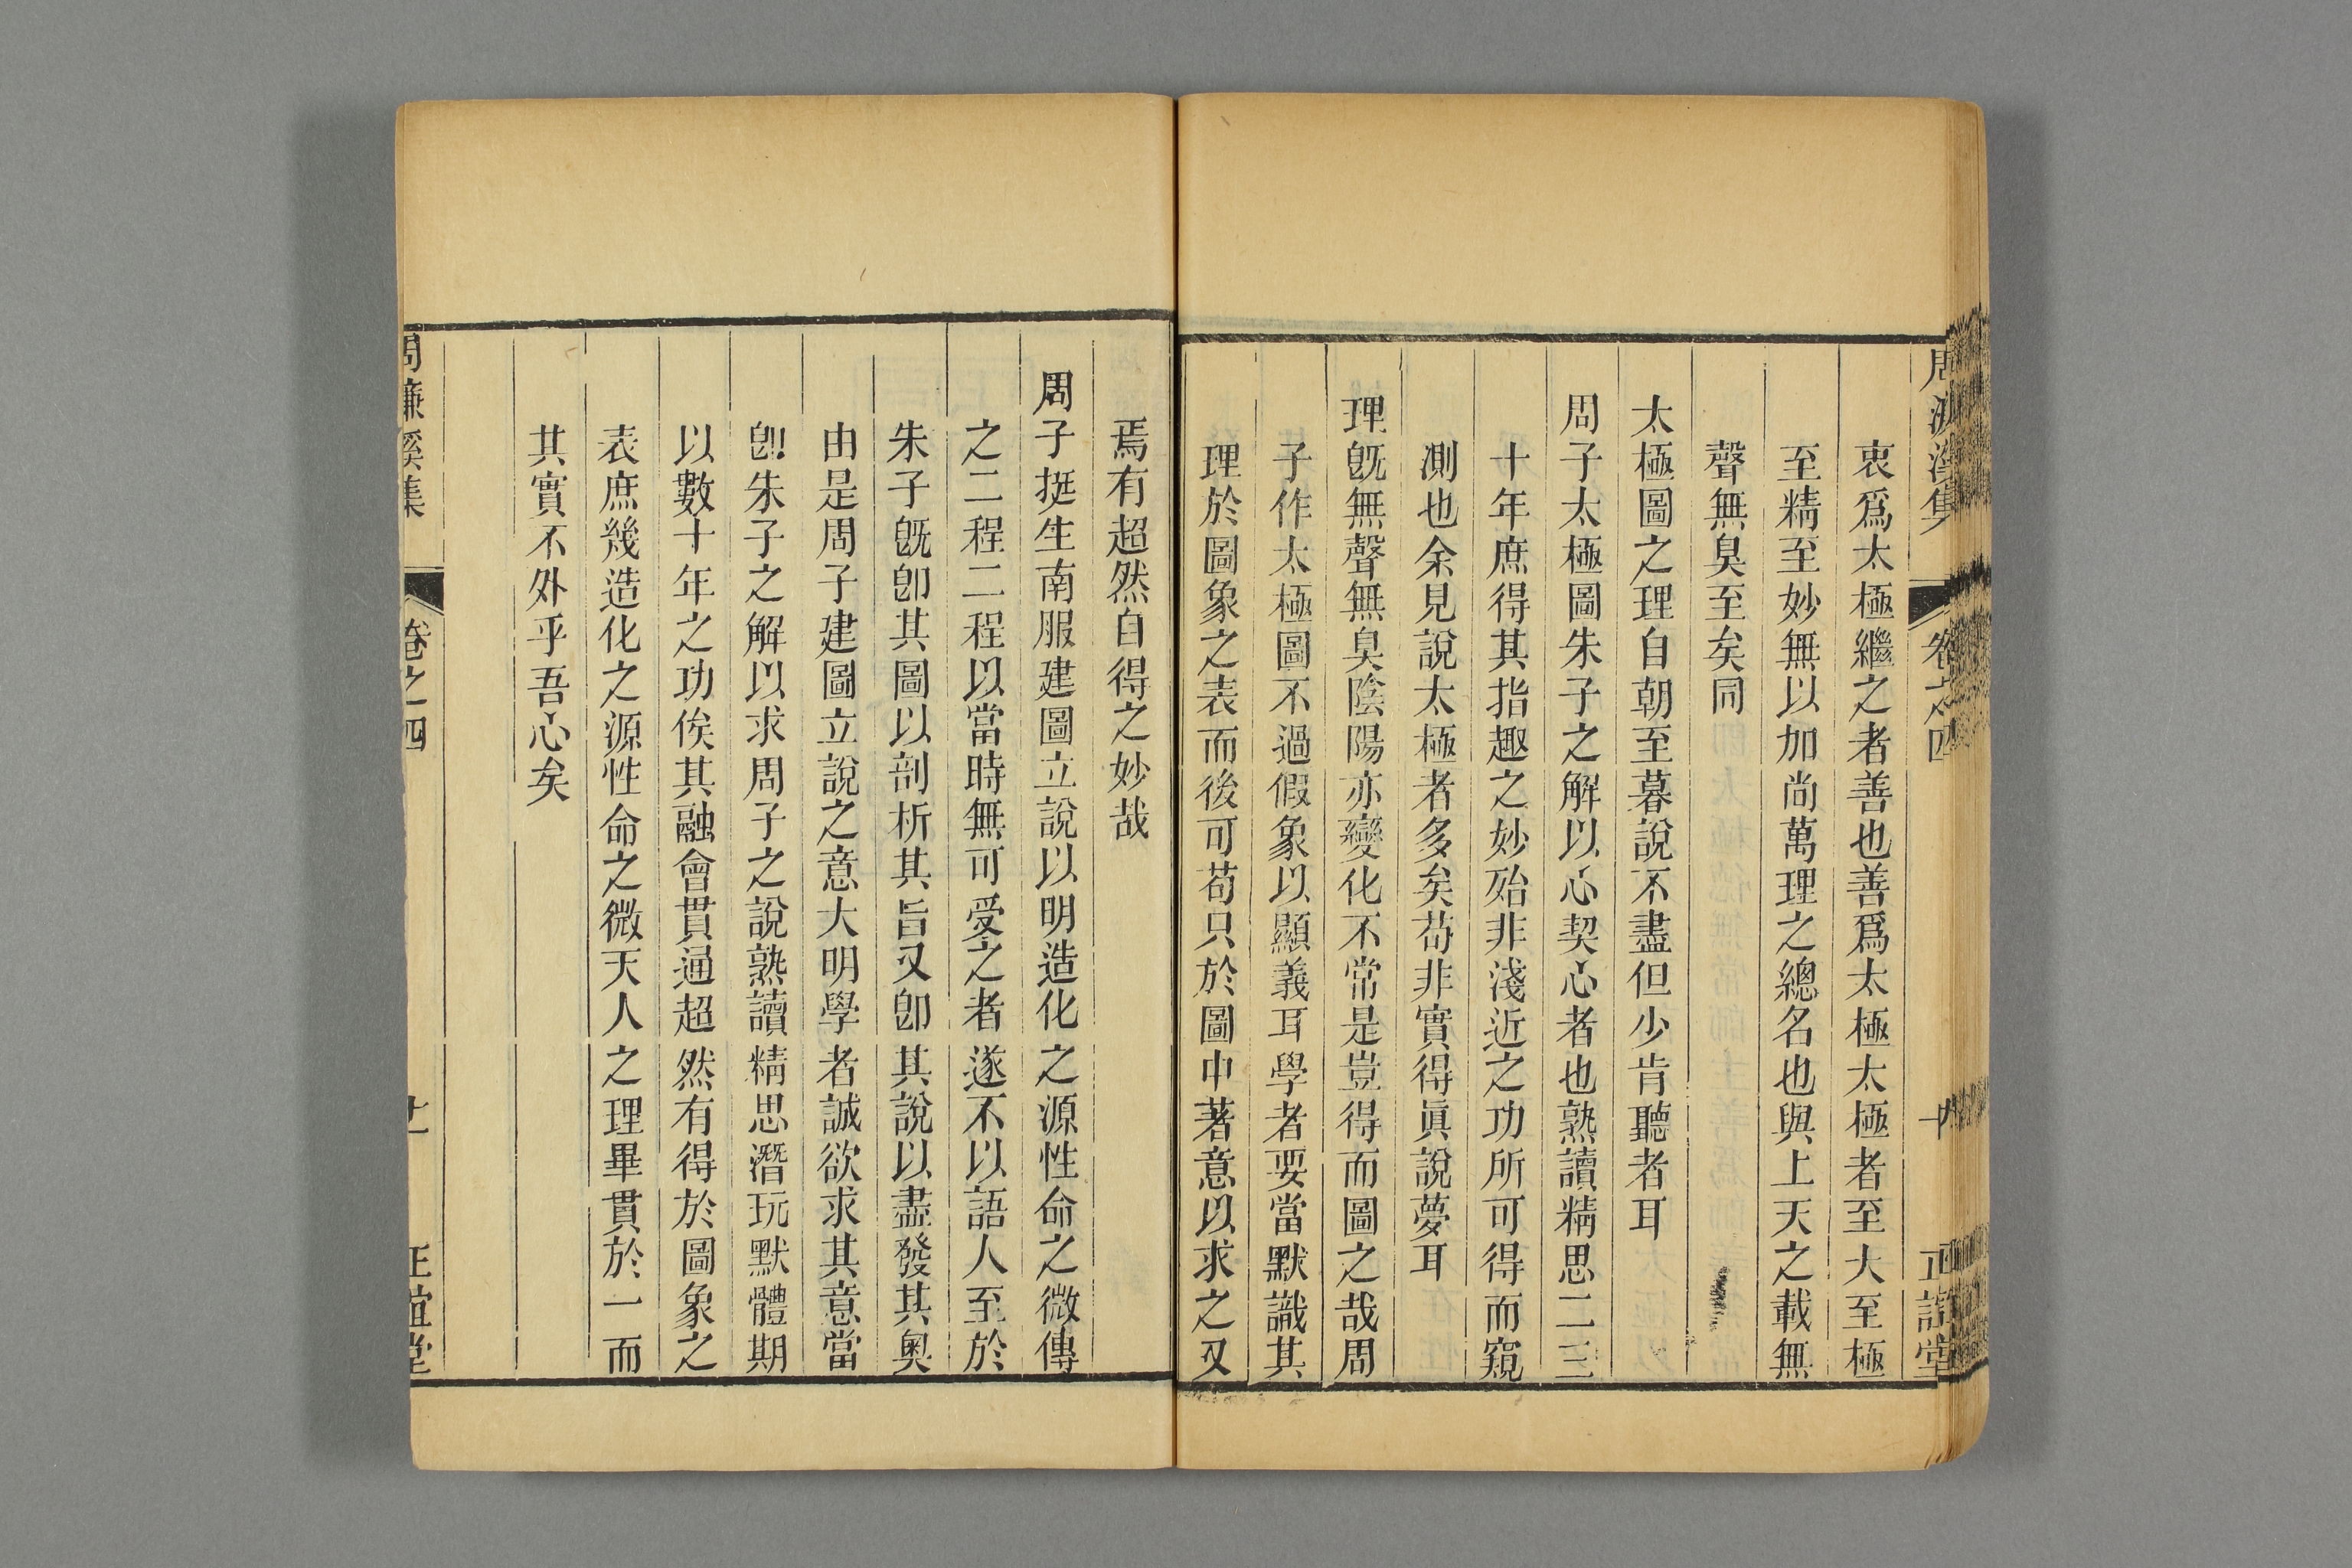 周濂溪集 卷之四 十 正誼堂
衷爲太極繼之者善也善爲太極太極者至大至極
至精至妙無以加尚萬理之總名也與上天之載無
聲無臭至矣同
太極圖之理自朝至暮說不盡但少肯聽者耳
周子太極圖朱子之解以心契心者也熟讀精思二三
十年庶得其指趣之妙殆非淺近之功所可得而窺
測也余見說太極者多矣苟非實得眞說夢耳
理旣無聲無臭陰陽亦變化不常是豈得而圖之哉周
子作太極圖不過假象以顯義耳學者要當默識其
理於圖象之表而後可苟只於圖中著意以求之又
焉有超然自得之妙哉
周子挺生南服建圖立說以明造化之源性命之微傳
之二程二程以當時無可受之者遂不以語人至於
朱子旣卽其圖以剖析其旨又卽其說以盡發其奧
由是周子建圖立說之意大明學者誠欲求其意當
卽朱子之解以求周子之說熟讀精思潛玩默體期
以數十年之功俟其融會貫通超然有得於圖象之
表庶幾造化之源性命之微天人之理畢貫於一而
其實不外乎吾心矣
周濂溪集 卷之四 十一 正誼堂